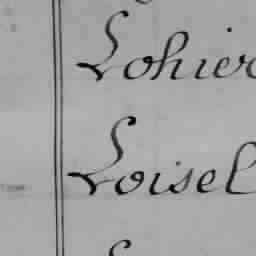 Lohier
Loisel